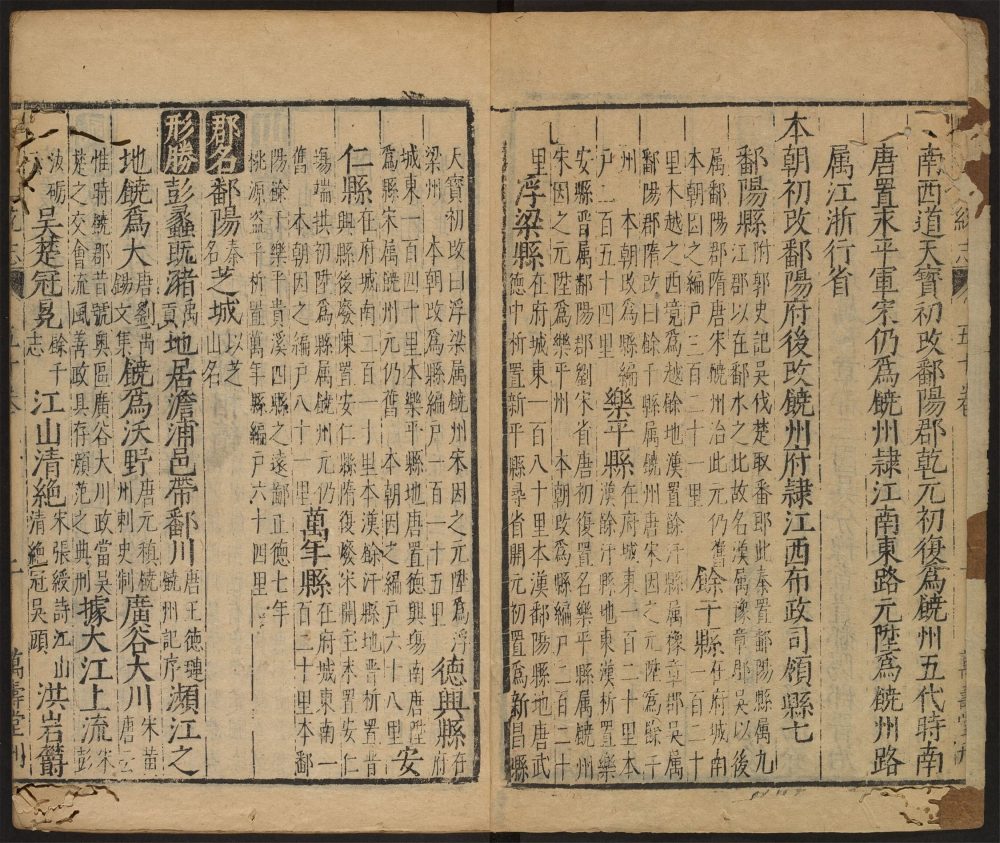 南西道天寶初改鄱陽郡乾元初復爲饒州五代時南
唐置永平軍宋仍爲饒州隷江南東路元陞爲饒州路
属江浙行省
本朝初改鄱陽府後改饒州府隷江西布政司領縣七
鄱陽縣
附郭史記吴伐楚取番即此秦置鄱陽縣属九
江郡以在鄱水之北故名漢属豫章郡吴以後
属鄱陽郡隋唐宋饒州治此元仍舊
本朝因之編戸三百二十一里
餘干縣
在府城南
一百二十
里本越之西境爲越餘地漢置餘汗縣属豫章郡吴属
鄱陽郡隋改曰餘干縣属饒州唐宋因之元陞爲餘干
州 本朝改爲縣編
戸一百五十四里
樂平縣
在府城東一百二十里本
漢餘汗縣地東漢析置樂
安縣晋属鄱陽郡劉宋省唐初復置名樂平縣属饒州
宋因之元陞爲樂平州 本朝改爲縣編戸二百二十
里
浮梁縣
在府城東一百八十里本漢鄱陽縣地唐武
德中析置新平縣尋省開元初置爲新昌縣
天寶初改曰浮梁属饒州宋因之元陞爲浮
梁州 本朝改爲縣編戸一百一十五里
德興縣
在府
城東一百四十里本樂平縣地唐置德興塲南唐陞
爲縣宋属饒州元仍舊 本朝因之編戸六十八里
安
仁縣
在府城南二百一十里本漢餘汗縣地晋析置晋
興縣後廢陳置安仁縣隋復廢宋開宝末置安仁
塲端拱初陞爲縣属饒州元仍
舊 本朝因之編戸八十一里
萬年縣
在府城東南一
百二十里本鄱
陽餘干樂平貴溪四縣之遠鄙正德七年
桃源盗平析置萬年縣編戸六十四里
郡名
鄱陽
秦名
芝城
以芝山名
形勝
彭蠡既瀦
禹貢
地居澹浦邑帶番川
唐王德璉
饒州記序
瀕江之
地饒爲大
唐劉禹
錫文集
饒爲沃野
唐元稹饒
州刺史制
廣谷大川
宋苗
唐云
惟時饒郡昔號奥區廣谷大川政當吴
楚之交會流風善政具存頗范之典刑
據大江上流
宋
彭
汝礪
吴楚冠冕
餘干
志
江山清絶
宋張綬詩江山
清絶冠吴頭
洪岩欝
萬壽堂刊